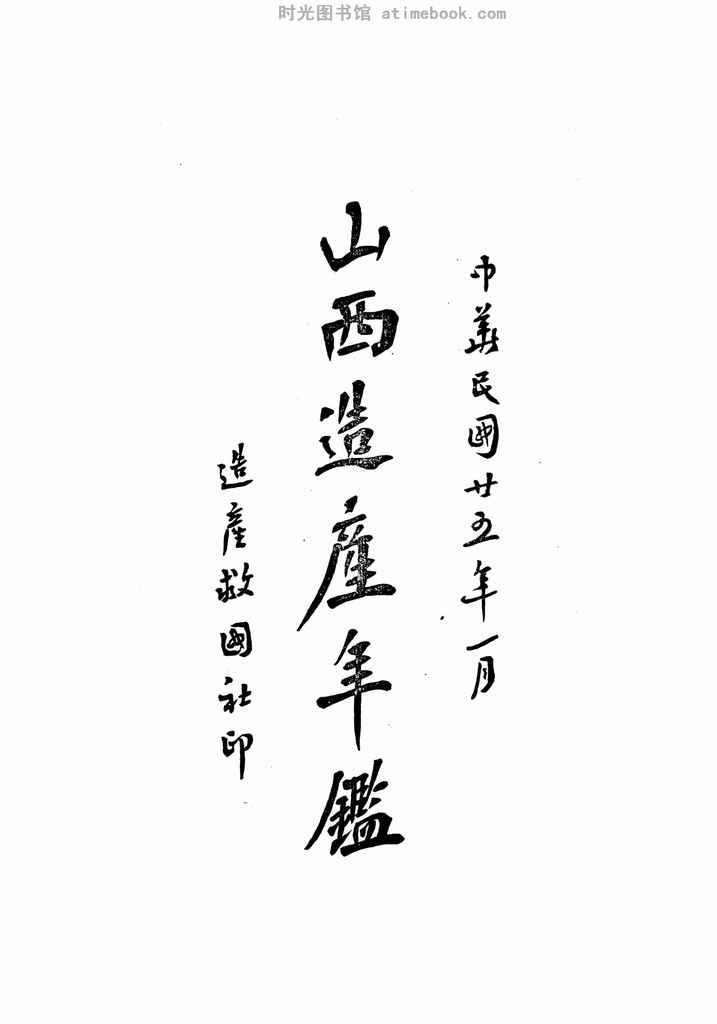 时光图书馆 atimebook.com
中華民國廿五年一月
山西造產年鑑
造產救國社印